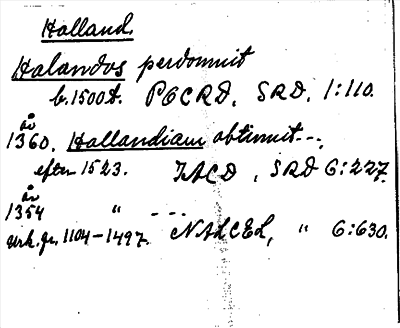 Halland.
Halandos perdomuit
b. 1500t. PGCRD, SRD. 1:110.
år
1360. Hallandiam obtinuit...
efter 1523. IACD, SRD 6:227.
år
1354 " ---
urk. fr. 1104-1497. NALCEL, " 6:630.